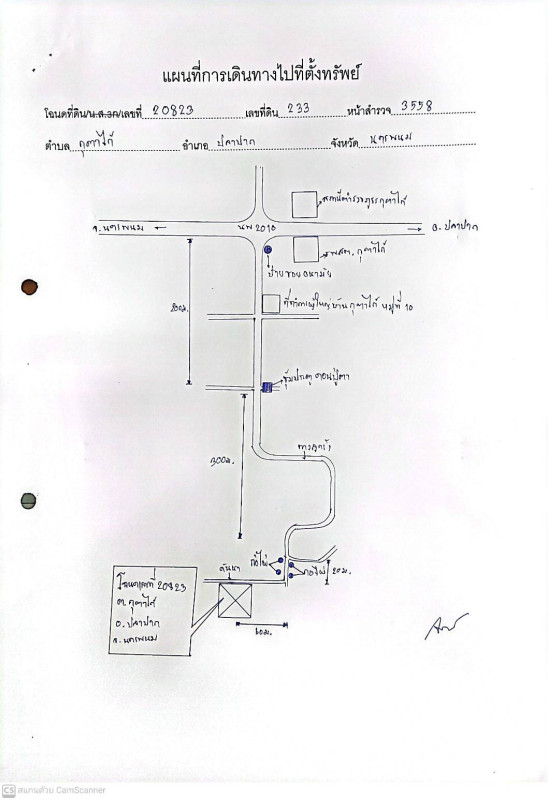 แผนที่การเดินทางไปที่ตั้งทรัพย์
โฉนดที่ดิน/น.ส.3ก/เลขที่ 20823 เลขที่ดิน 233 หน้าสำรวจ 3558
ตำบล กุตาไก้ อำเภอ ปลาปาก จังหวัด นครพนม
สถานีตำรวจภูธรกุตาไก้
จ.นครพนม
นพ 2010
อ.ปลาปาก
รพสต. กุตาไก้
ป้ายซอยอนามัย
ที่ทำการผู้ใหญ่บ้านกุตาไก้ หมู่ที่ 10
200ม.
ซุ้มประตูดอนปู่ตา
ทางลูกรัง
300ม.
กอไผ่
กอไผ่
20ม.
คันนา
โฉนดเลขที่ 20823
ต.กุตาไก้
อ.ปลาปาก
จ.นครพนม
60ม.
CS สแกนด้วย CamScanner